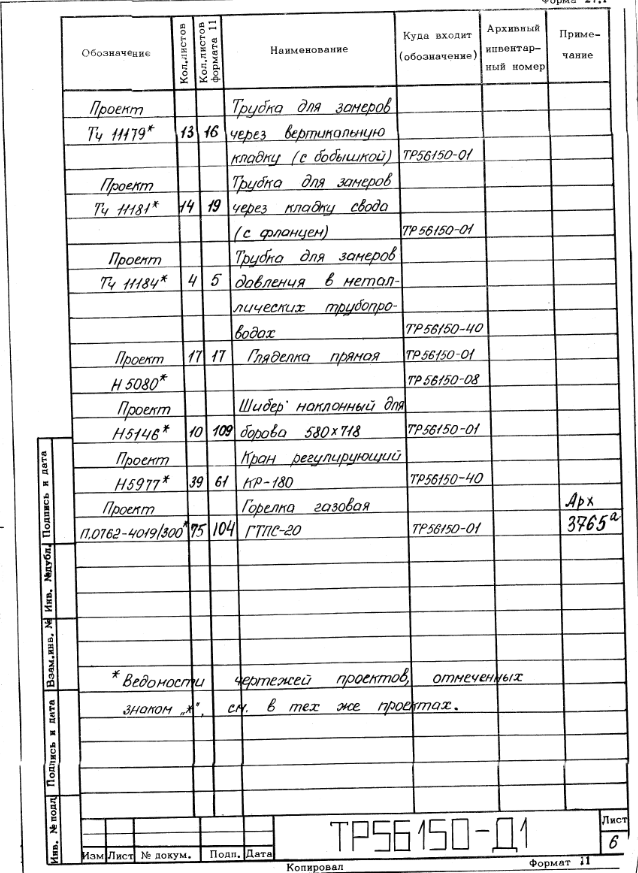 Форма 27.1
Обозначение Кол.листов Кол.листов формата 11 Наименование Куда входит (обозначение) Архивный инвентарный номер Примечание
Проект Трубка для замеров
Тч 11179* 13 16 через вертикальную
кладку (с бобышкой) ТР56150-01
Проект Трубка для замеров
Тч 11181* 14 19 через кладку свода
(с фланцем) ТР56150-01
Проект Трубка для замеров
Тч 11184* 4 5 давления в метал-
лических трубопро-
водах ТР56150-40
Проект 17 17 Гляделка прямая ТР56150-01
Н5080* ТР56150-08
Проект Шибер наклонный для
Н5146* 10 109 борова 580х718 ТР56150-01
Проект Кран регулирующий
Н5977* 39 61 КР-180 ТР56150-40
Проект Горелка газовая Арх
П.0762-4019/300* 75 104 ГТПС-20 ТР56150-01 3765а
* Ведомости чертежей проектов, отмеченных
знаком „*", см. в тех же проектах.
Подпись и дата
Инв. №дубл.
Взам.инв. №
Подпись и дата
Инв. №подл
ТР56150-Д1
Лист
6
Изм Лист № докум. Подп. Дата
Копировал Формат 11